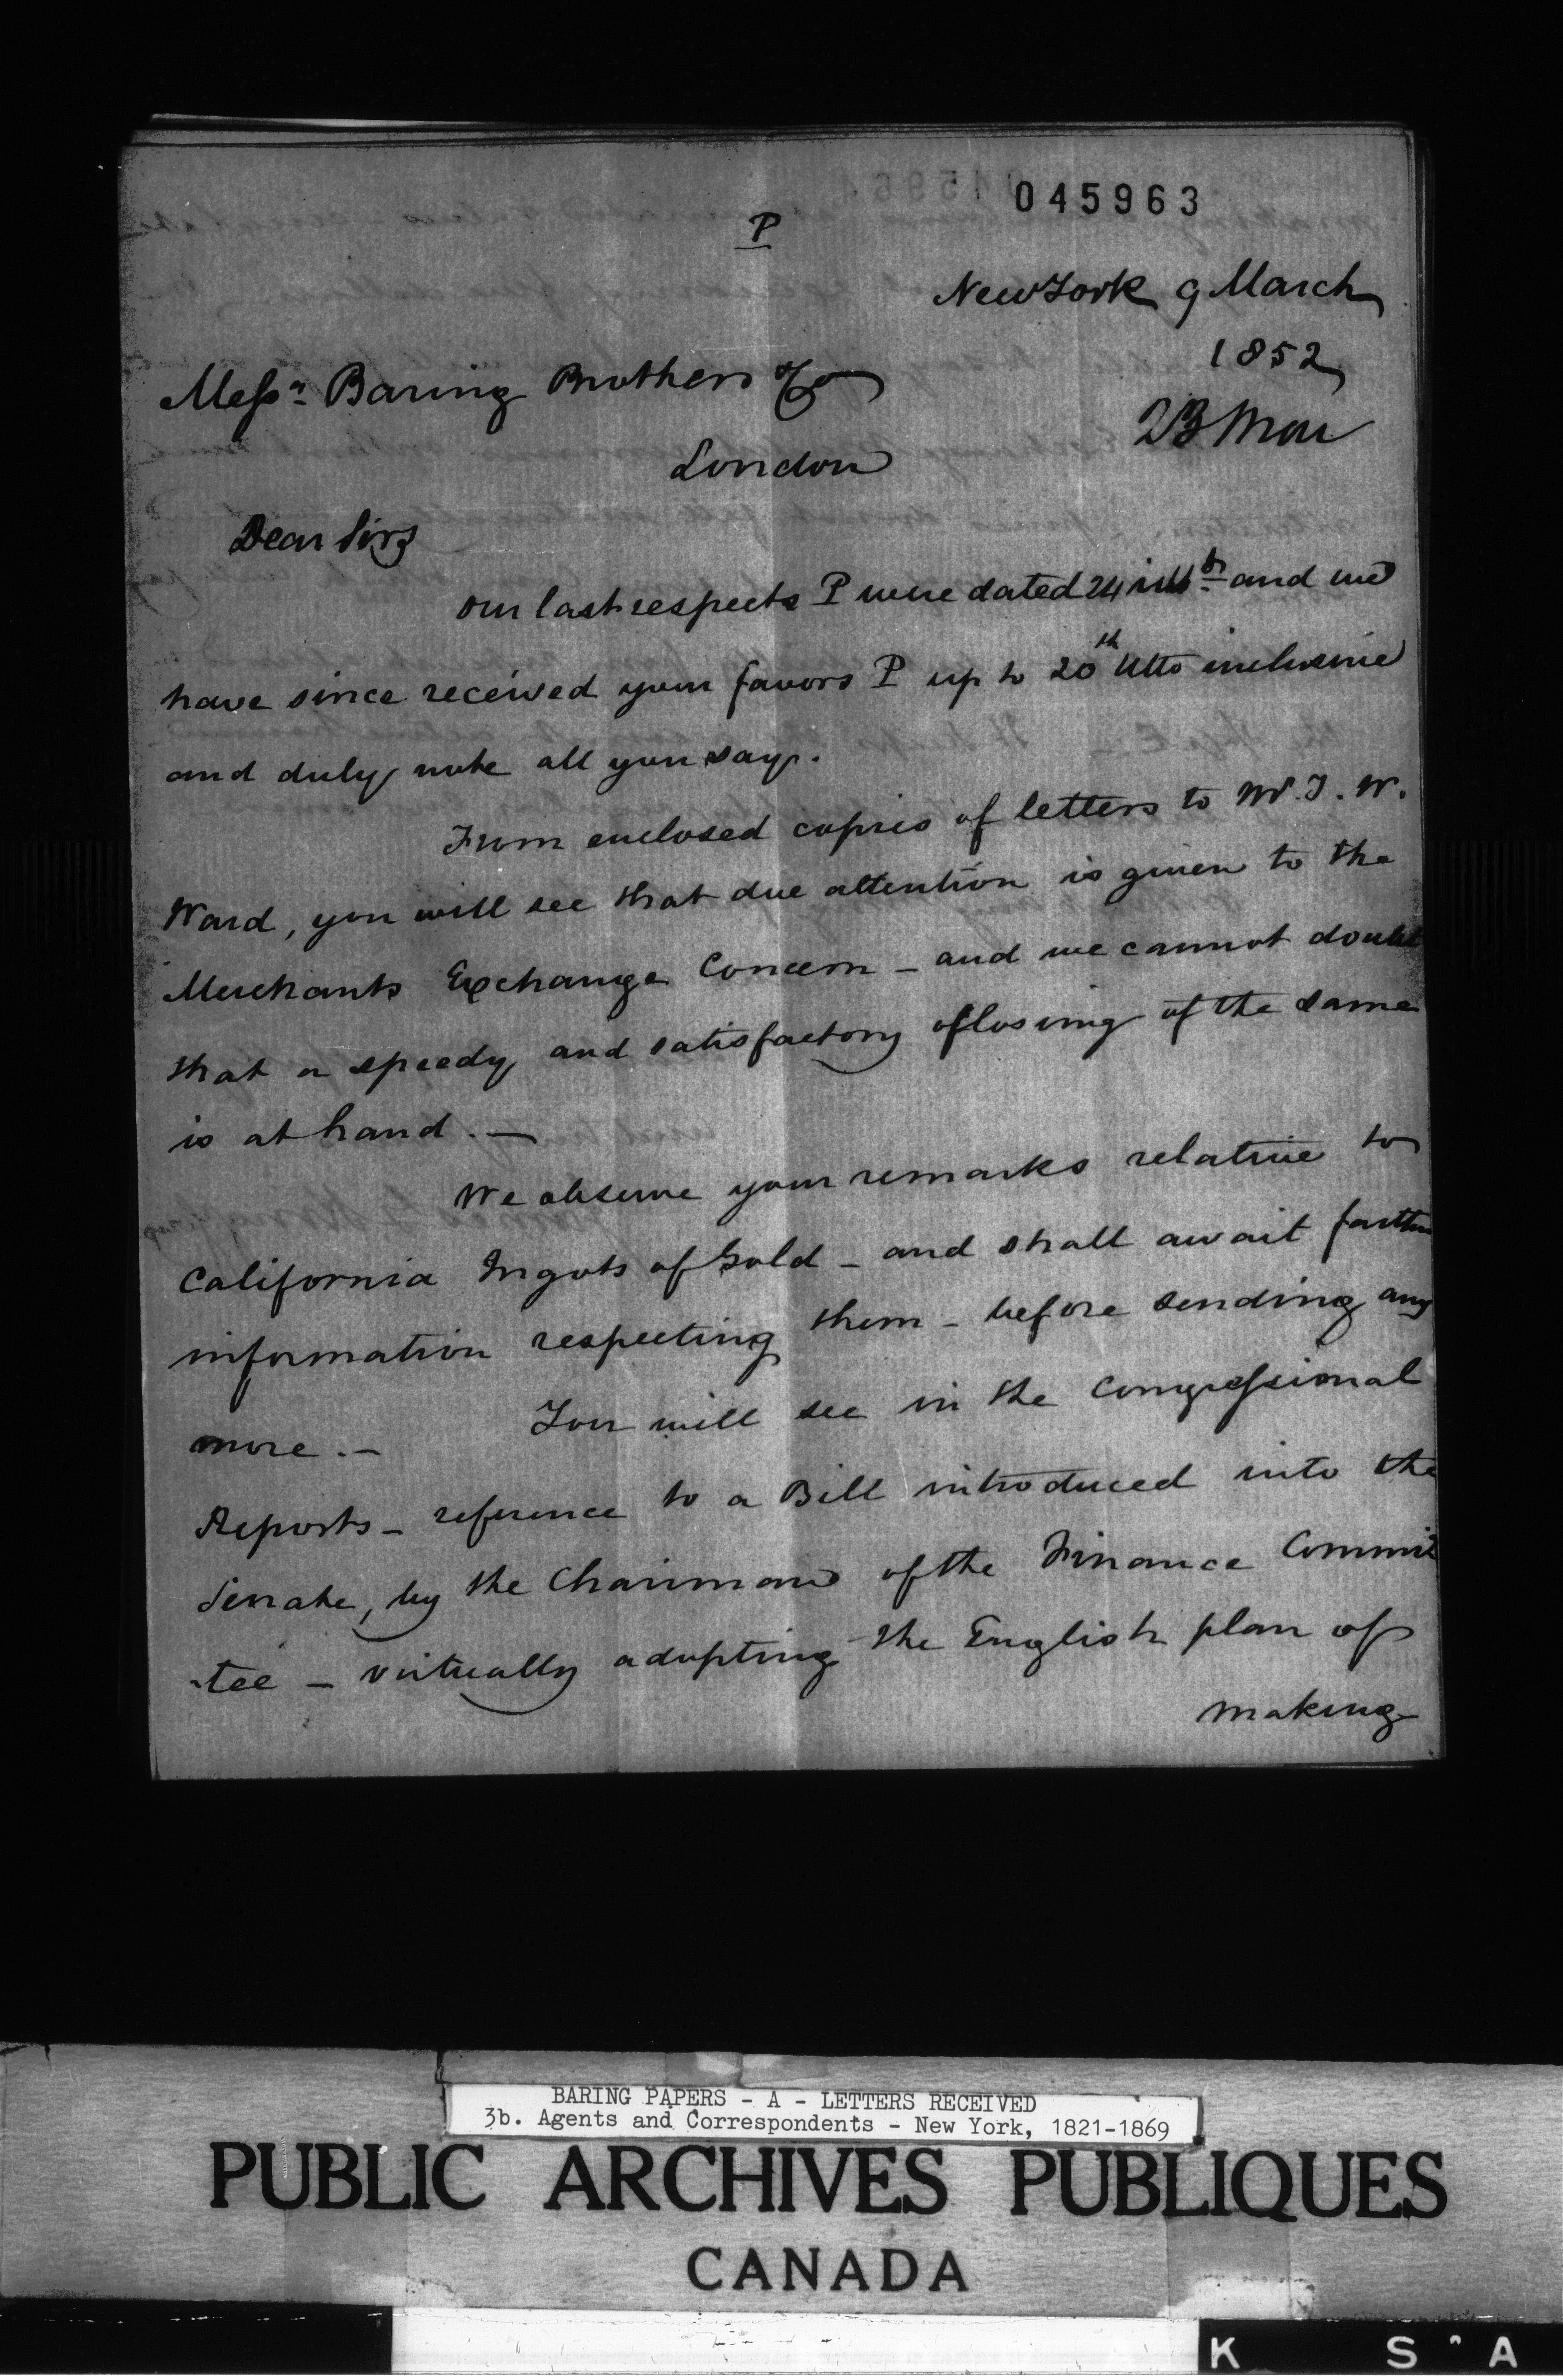 045963
P
New York 9 March
1852
23 Mar
Messrs Baring Brothers & Co
London
Dear Sirs
Our last respects P were dated 24 and we
have since received your favors P up to 20th Ulto inclusive
and duly note all you say.
From enclosed copies of letters to Mr. T. W.
Ward, you will see that due attention is given to the
Merchants Exchange Concern - and we cannot doubt
that a speedy and satisfactory closing of the same
is at hand. —
We observe your remarks relative to
California Ingots of Gold - and shall await farther
information respecting them - before sending any
more. —
You will see in the Congressional
Reports - reference to a Bill introduced into the
Senate, by the Chairman of the Finance Commit
-tee - virtually adopting the English plan of
making
BARING PAPERS - A - LETTERS RECEIVED
3b. Agents and Correspondents - New York, 1821-1869
PUBLIC ARCHIVES PUBLIQUES
CANADA
K S A